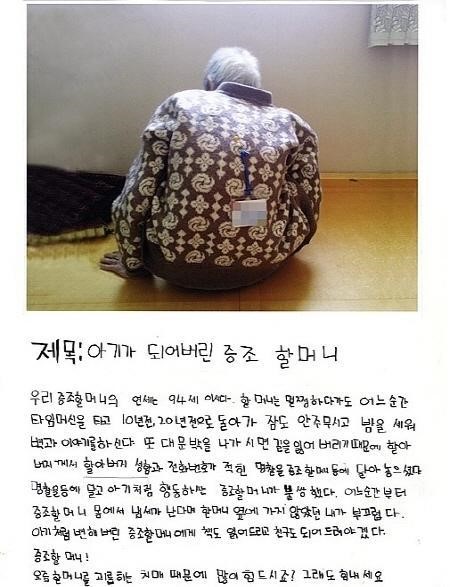 제목: 아기가 되어버린 증조 할머니
우리 증조할머니의 연세는 94세 이시다. 할머니는 멀쩡하다가도 어느순간
타임머신을 타고 10년전, 20년전으로 돌아가 잠도 안주무시고 밤을 새워
벽과 이야기를하신다. 또 대문밖을 나가시면 길을 잃어 버리기때문에 할아
버지께서 할아버지 성함과 전화번호가 적힌 명찰을 증조할머니등에 달아 놓으셨다
명찰을등에 달고 아기처럼 행동하는 증조할머니가 불쌍했다. 어느순간부터
증조할머니 몸에서 냄새가 난다며 할머니 옆에 가지 않았던 내가 부끄럽다.
아기처럼 변해버린 증조할머니에게 책도 읽어드리고 친구도 되어 드려야겠다.
증조할머니!
요즘 할머니를 괴롭히는 치매 때문에 많이 힘드시죠? 그래도 힘내세요